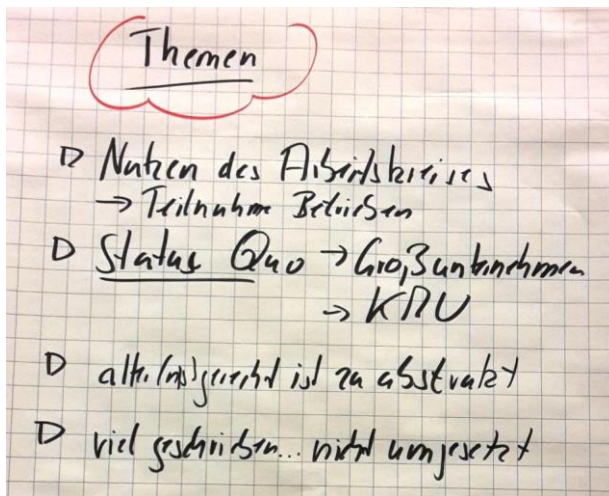 Themen
Nutzen des Arbeitskreises
→ Teilnahme Betrieben
Status Quo → Großunternehmen
→ KMU
alter(ns)gerecht ist zu abstrakt
viel geschrieben... nicht umgesetzt